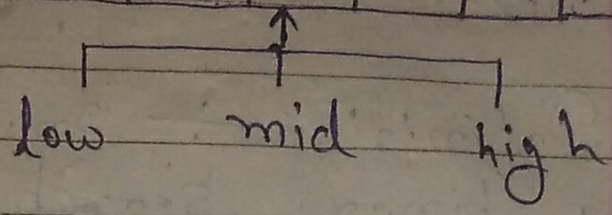 low mid high